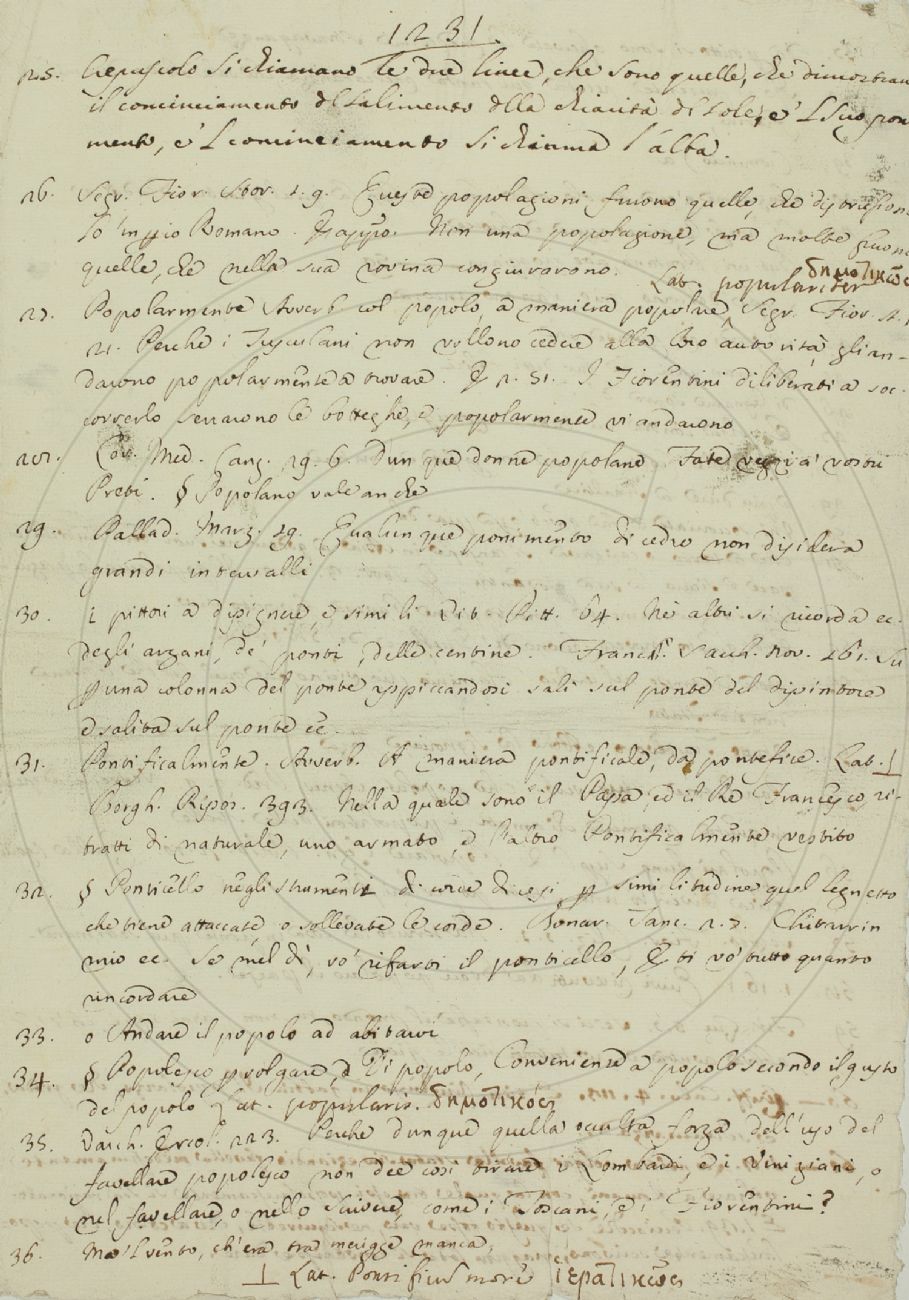 1231.
25. Crepuscolo si chiamano le due linee, che sono quelle, che dimostran
il cominciamento del salimento della chiarità del sole, e 'l suo pon
mento, e 'l cominciamento si chiama l'alba.
26. Segr. Fior. Stor. 1. 9. Queste popolazioni furono quelle, che
lo 'mperio Romano. Non una popolazione, ma molte furono
quelle, che nella sua rovina congiurarono. Lat. populariter δημοτικῶς
27. Popolarmente Avverb. col popolo, a maniera popolare Segr. Fior.
21. Perchè i Tusculani non vollono cedere alla loro autorità, gli an-
darono popolarmente a trovare. E 2. 51. I Fiorentini diliberati a soc-
correrlo serrarono le botteghe, e popolarmente vi andarono
28. Lor. Med. Canz. 29. 6. Dunque donne popolane Fate vezzi a' vostri
Preti. § Popolano vale anche
29. Pallad. Marz. 19. Qualunque ponimento di cedro non disidera
grandi intervalli
30. i pittori a dipignere, e simili Lib. Pitt. 64. Nè altri si ricorda ec.
degli argani, de' ponti, delle centine. Franc. Sacch. Nov. 161. Su
per una colonna del ponte appiccandosi salì sul ponte del dipintore
e salita sul ponte ec.
31. Pontificalmente. Avverb. A maniera pontificale, da pontefice. Lat. ⊥
Borgh. Ripos. 393. Nella quale sono il Papa, ed il Re Francesco, ri-
tratti di naturale, uno armato, e l'altro Pontificalmente vestito
32. § Ponticello negli strumenti di corde dicesi per similitudine quel legnetto
che tiene attaccate o sollevate le corde. Bonar. Tanc. 2. 7. Chitarrin
mio ec. Se mel dì, vo' rifarti il ponticello, E ti vo' tutto quanto
rincordare
33. o Andare il popolo ad abitarvi
34. § Popolesco per volgare, e Di popolo, Conveniente a popolo secondo il gusto
del popolo Lat. popularis. δημοτικός
35. Varch. Ercol. 223. Perchè dunque quella occulta forza dell'uso del
favellare popolesco non dee così tirare i Lombardi, e i Viniziani, o
nel favellare, o nello scrivere, come i Toscani, e i Fiorentini?
36. Ma 'l vento, ch'era tra merigge manca,
⊥ Lat. Pontificis more ἱερατικῶς